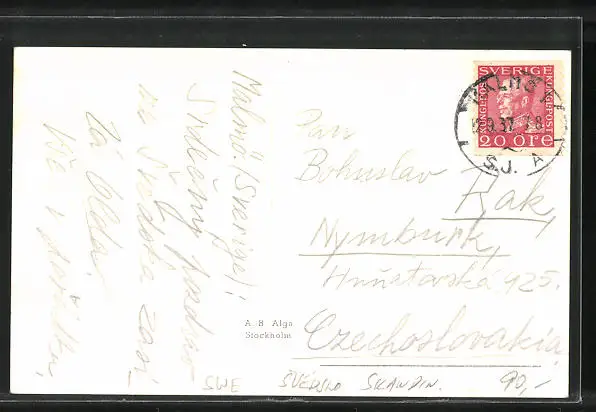 Malmö (Sverige)!
Srdečný pozdrav
ze Švédska zasí-
lá Olda.
Vše v pořádku.
A. B. Alga
Stockholm
SVERIGE
KUNGL. POST
KUNGL. POST
20 ÖRE
MALMÖ 1
.9.37
S.J. A
Pan
Bohuslav
Rak,
Nymburk,
925.
Czechoslovakia.
SWE ŠVÉDSKO SKANDIN. 90,-